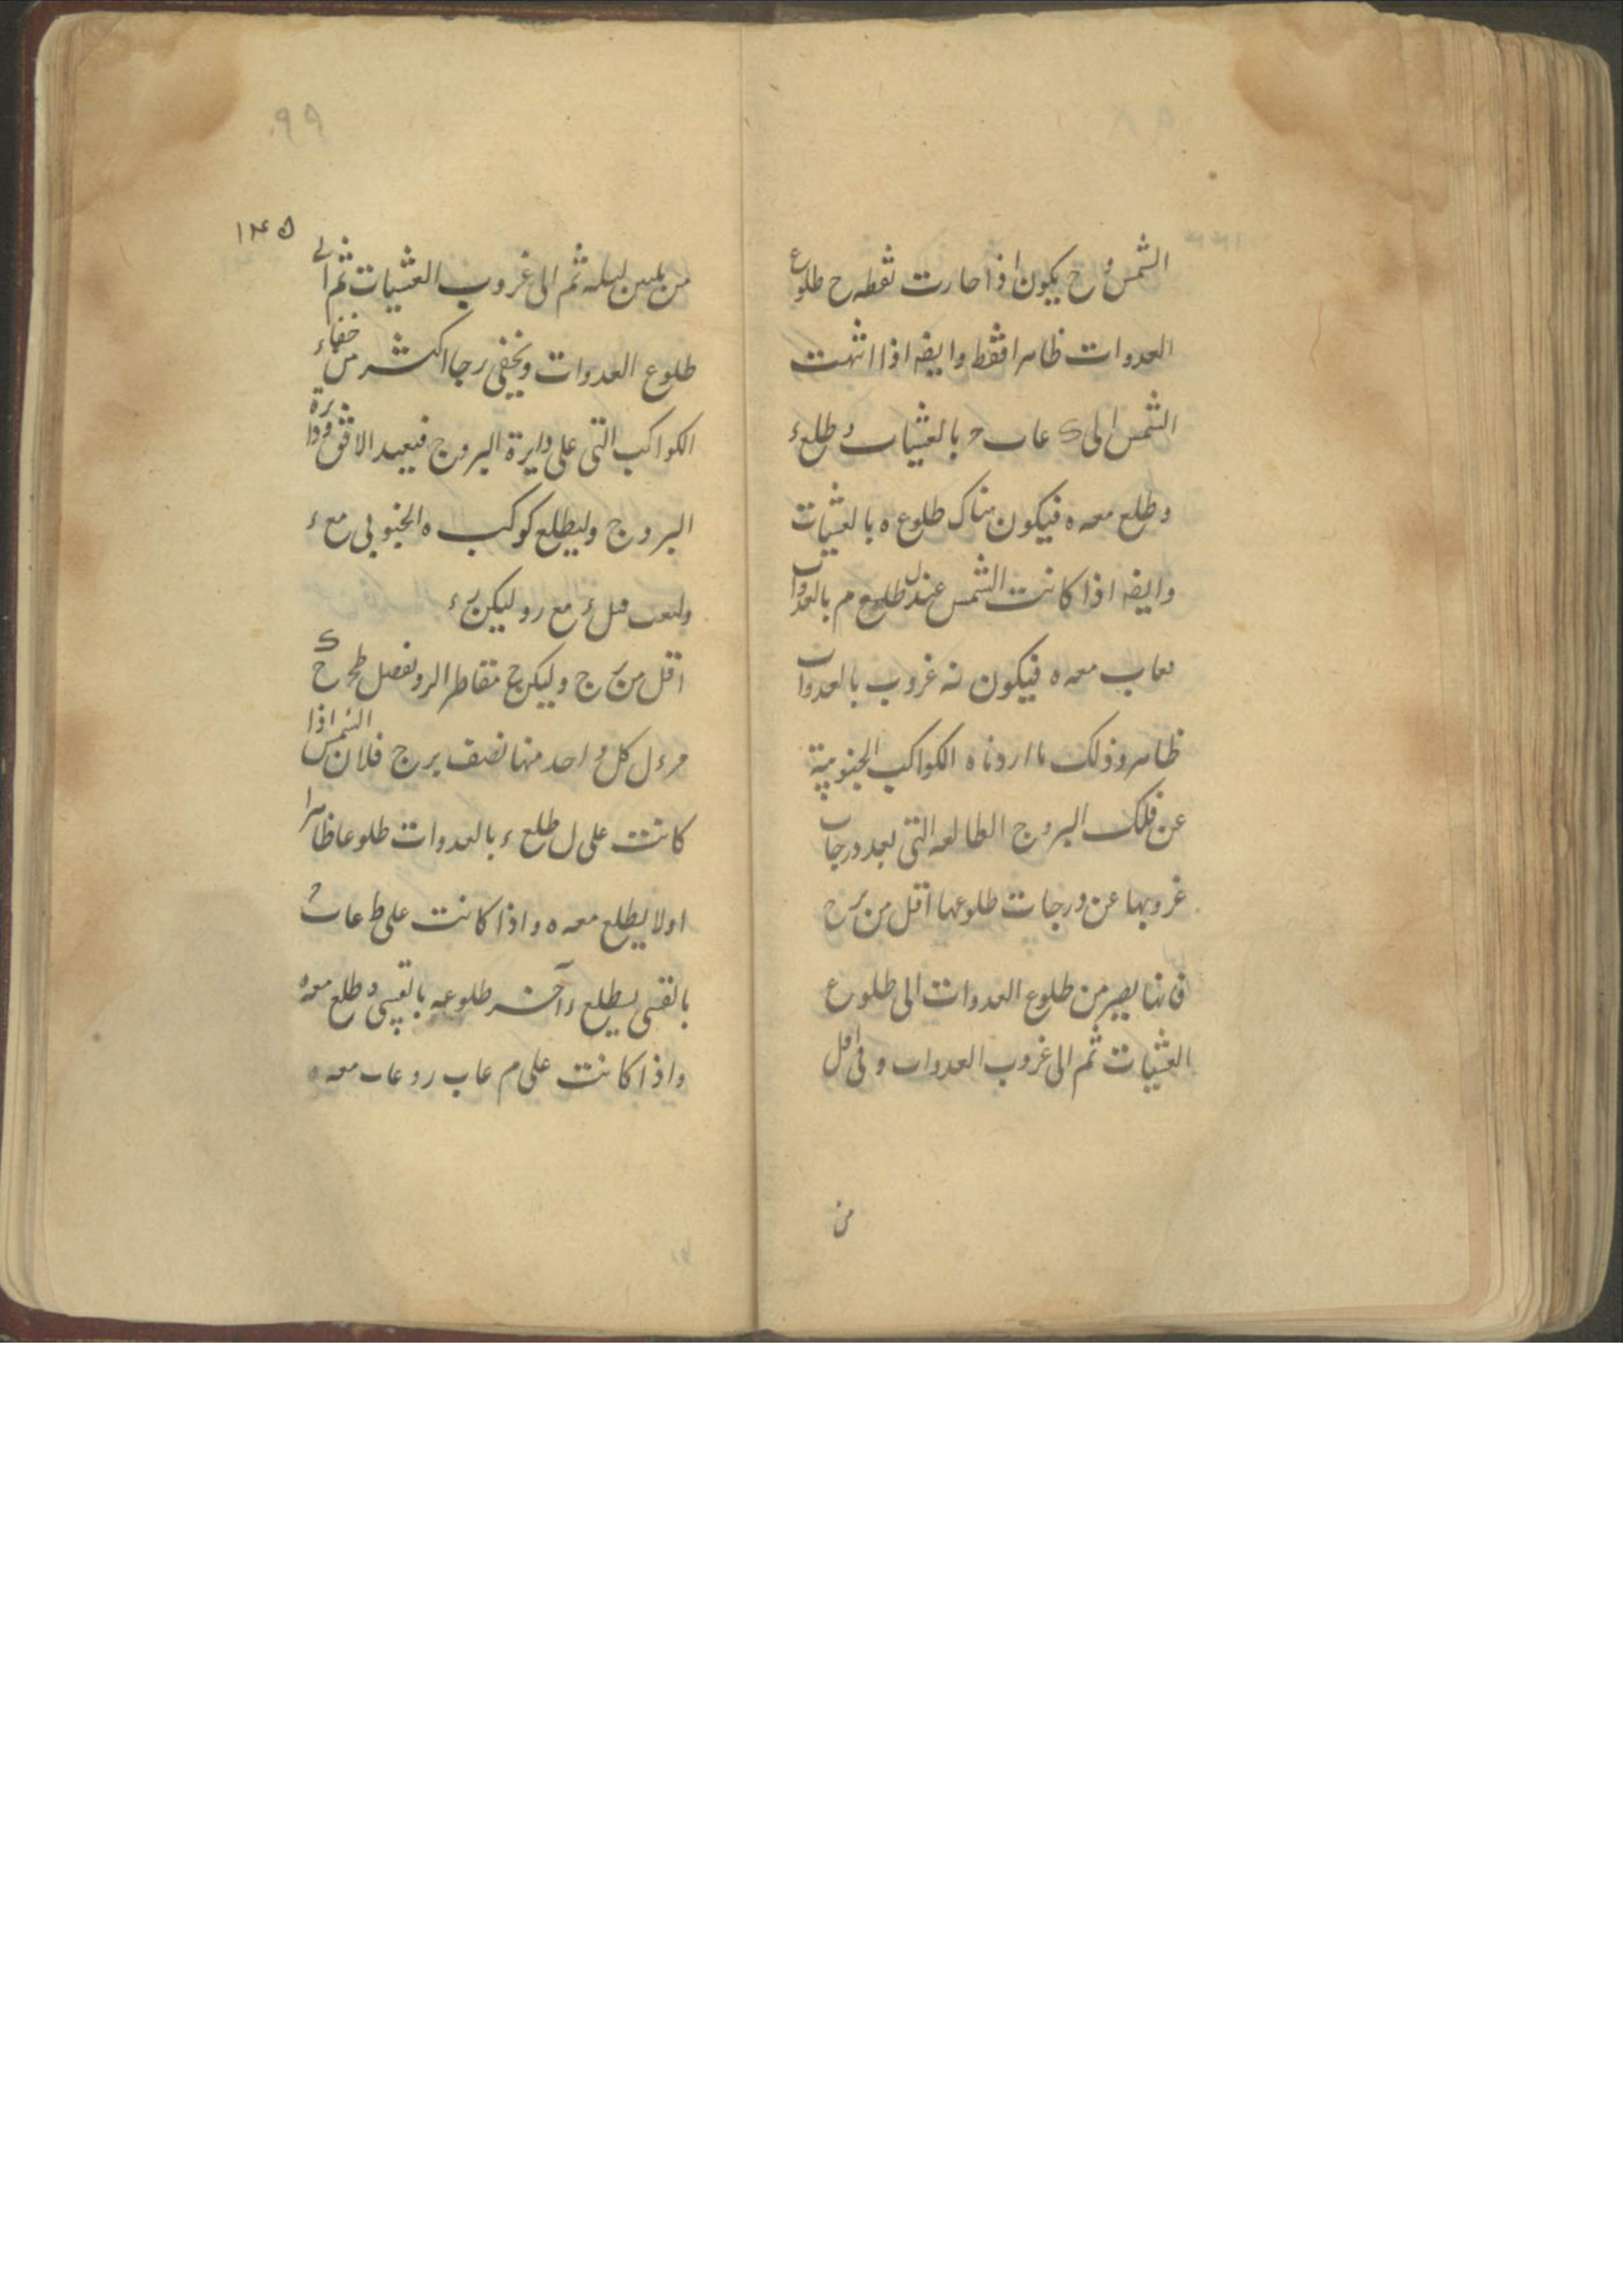 الشمس و ح يكون اذا صارت نقطه ح طلوع
العدوات ظاهرا فقط وايضه اذا انتهت
الشمس الى ك عاب ح بالعشيات و طلع ء
و طلع معه ه فيكون هناك طلوع ه بالعشيات
وايضه اذا كانت الشمس عند ل طلوع م بالعدوات
معاب معه ه فيكون نه غروب بالعدوات
ظاهر وذلك ما اردناه الكواكب الجنوبية
عن فلك البروج الطالعه التى بعد درجات
غروبها عن درجات طلوعها اقل من برج
فانها يصير من طلوع العدوات الى طلوع
العشيات ثم الى غروب العدوات و فى اقل
من
٩٩
١٤٥
من ليله ثم الى غروب العشيات ثم الى
طلوع العدوات ويخفى رجا اكثر من خفاء
الكواكب التى على دايرة البروج فيعيد الافق و دايرة
البروج وليطلع كوكب ه الجنوبى مع ء
مع ر و ليكن ء
اقل من برج و ليكن ج مقاطر الر و نفصل ط ح ح ك
م ء ل كل واحد منها نصف برج فلان الشمس اذا
كانت على ل طلع ء بالعدوات طلوعا ظاهرا
اولا يطلع معه ه و اذا كانت على ط عاب ح
بالقسى يطلع و آخر طلوعه بالقسى و طلع معه ه
و اذا كانت على م عاب ر و عاب معه ه